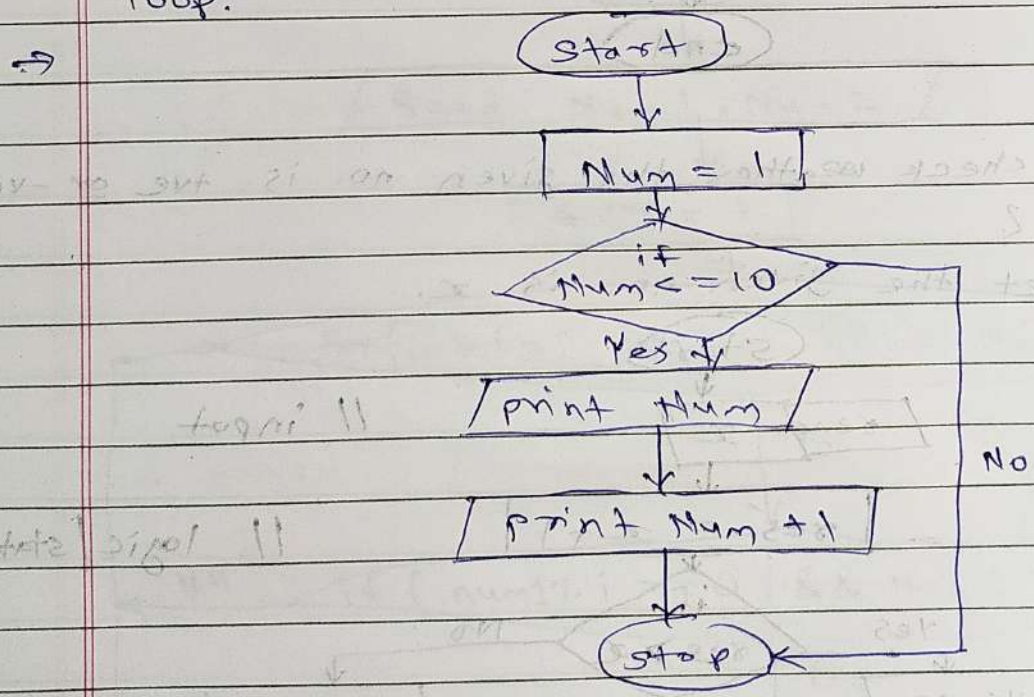 loop.
Start
Num = 1
if
Num <= 10
Yes
print Num
No
print Num +1
stop